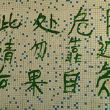 此处危险
请勿靠近
后果自